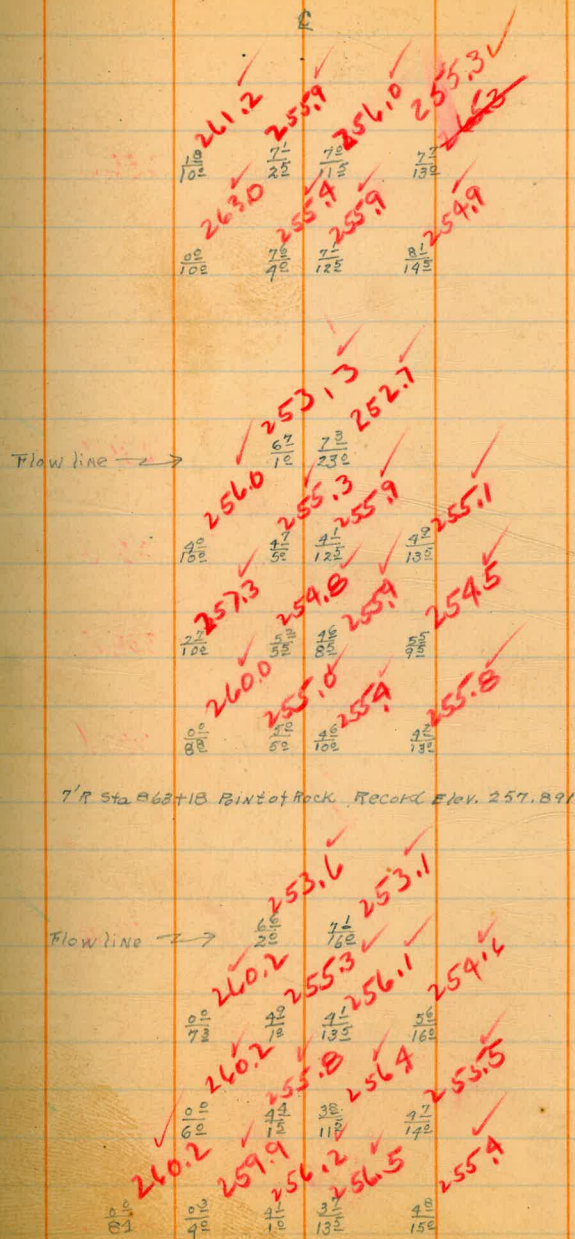 ℄
261.2 255.9 256.0 255.3
1 8/10 0 7 1/2 5 7 0/11 5 7 7/13 0
263.0 255.4 255.9 254.9
0 0/10 0 7 6/4 0 7 1/12 5 8 1/14 5
253.3 252.7
Flow line → 6 7/1 0 7 3/23 0
256.0 255.3 255.9 255.1
4 0/10 0 4 7/5 0 4 1/12 5 4 9/13 5
257.3 254.8 255.4 254.5
2 7/10 0 5 2/5 5 4 6/8 5 5 5/9 5
260.0 255.0 255.4 255.8
0 0/8 8 5 0/5 0 4 6/10 0 4 2/13 0
7'R Sta 863+18 Point of Rock Record Elev. 257.891
253.6 253.1
Flow line → 6 6/2 0 7 1/16 0
260.2 255.3 256.1 254.6
0 0/7 3 4 9/1 0 4 1/13 5 5 6/16 0
260.2 255.8 256.4 255.5
0 0/6 0 4 4/1 5 3 8/11 5 4 7/14 0
260.2 259.9 256.2 256.5 255.4
0 0/8 1 0 3/4 0 4 1/1 0 3 7/13 5 4 8/15 0